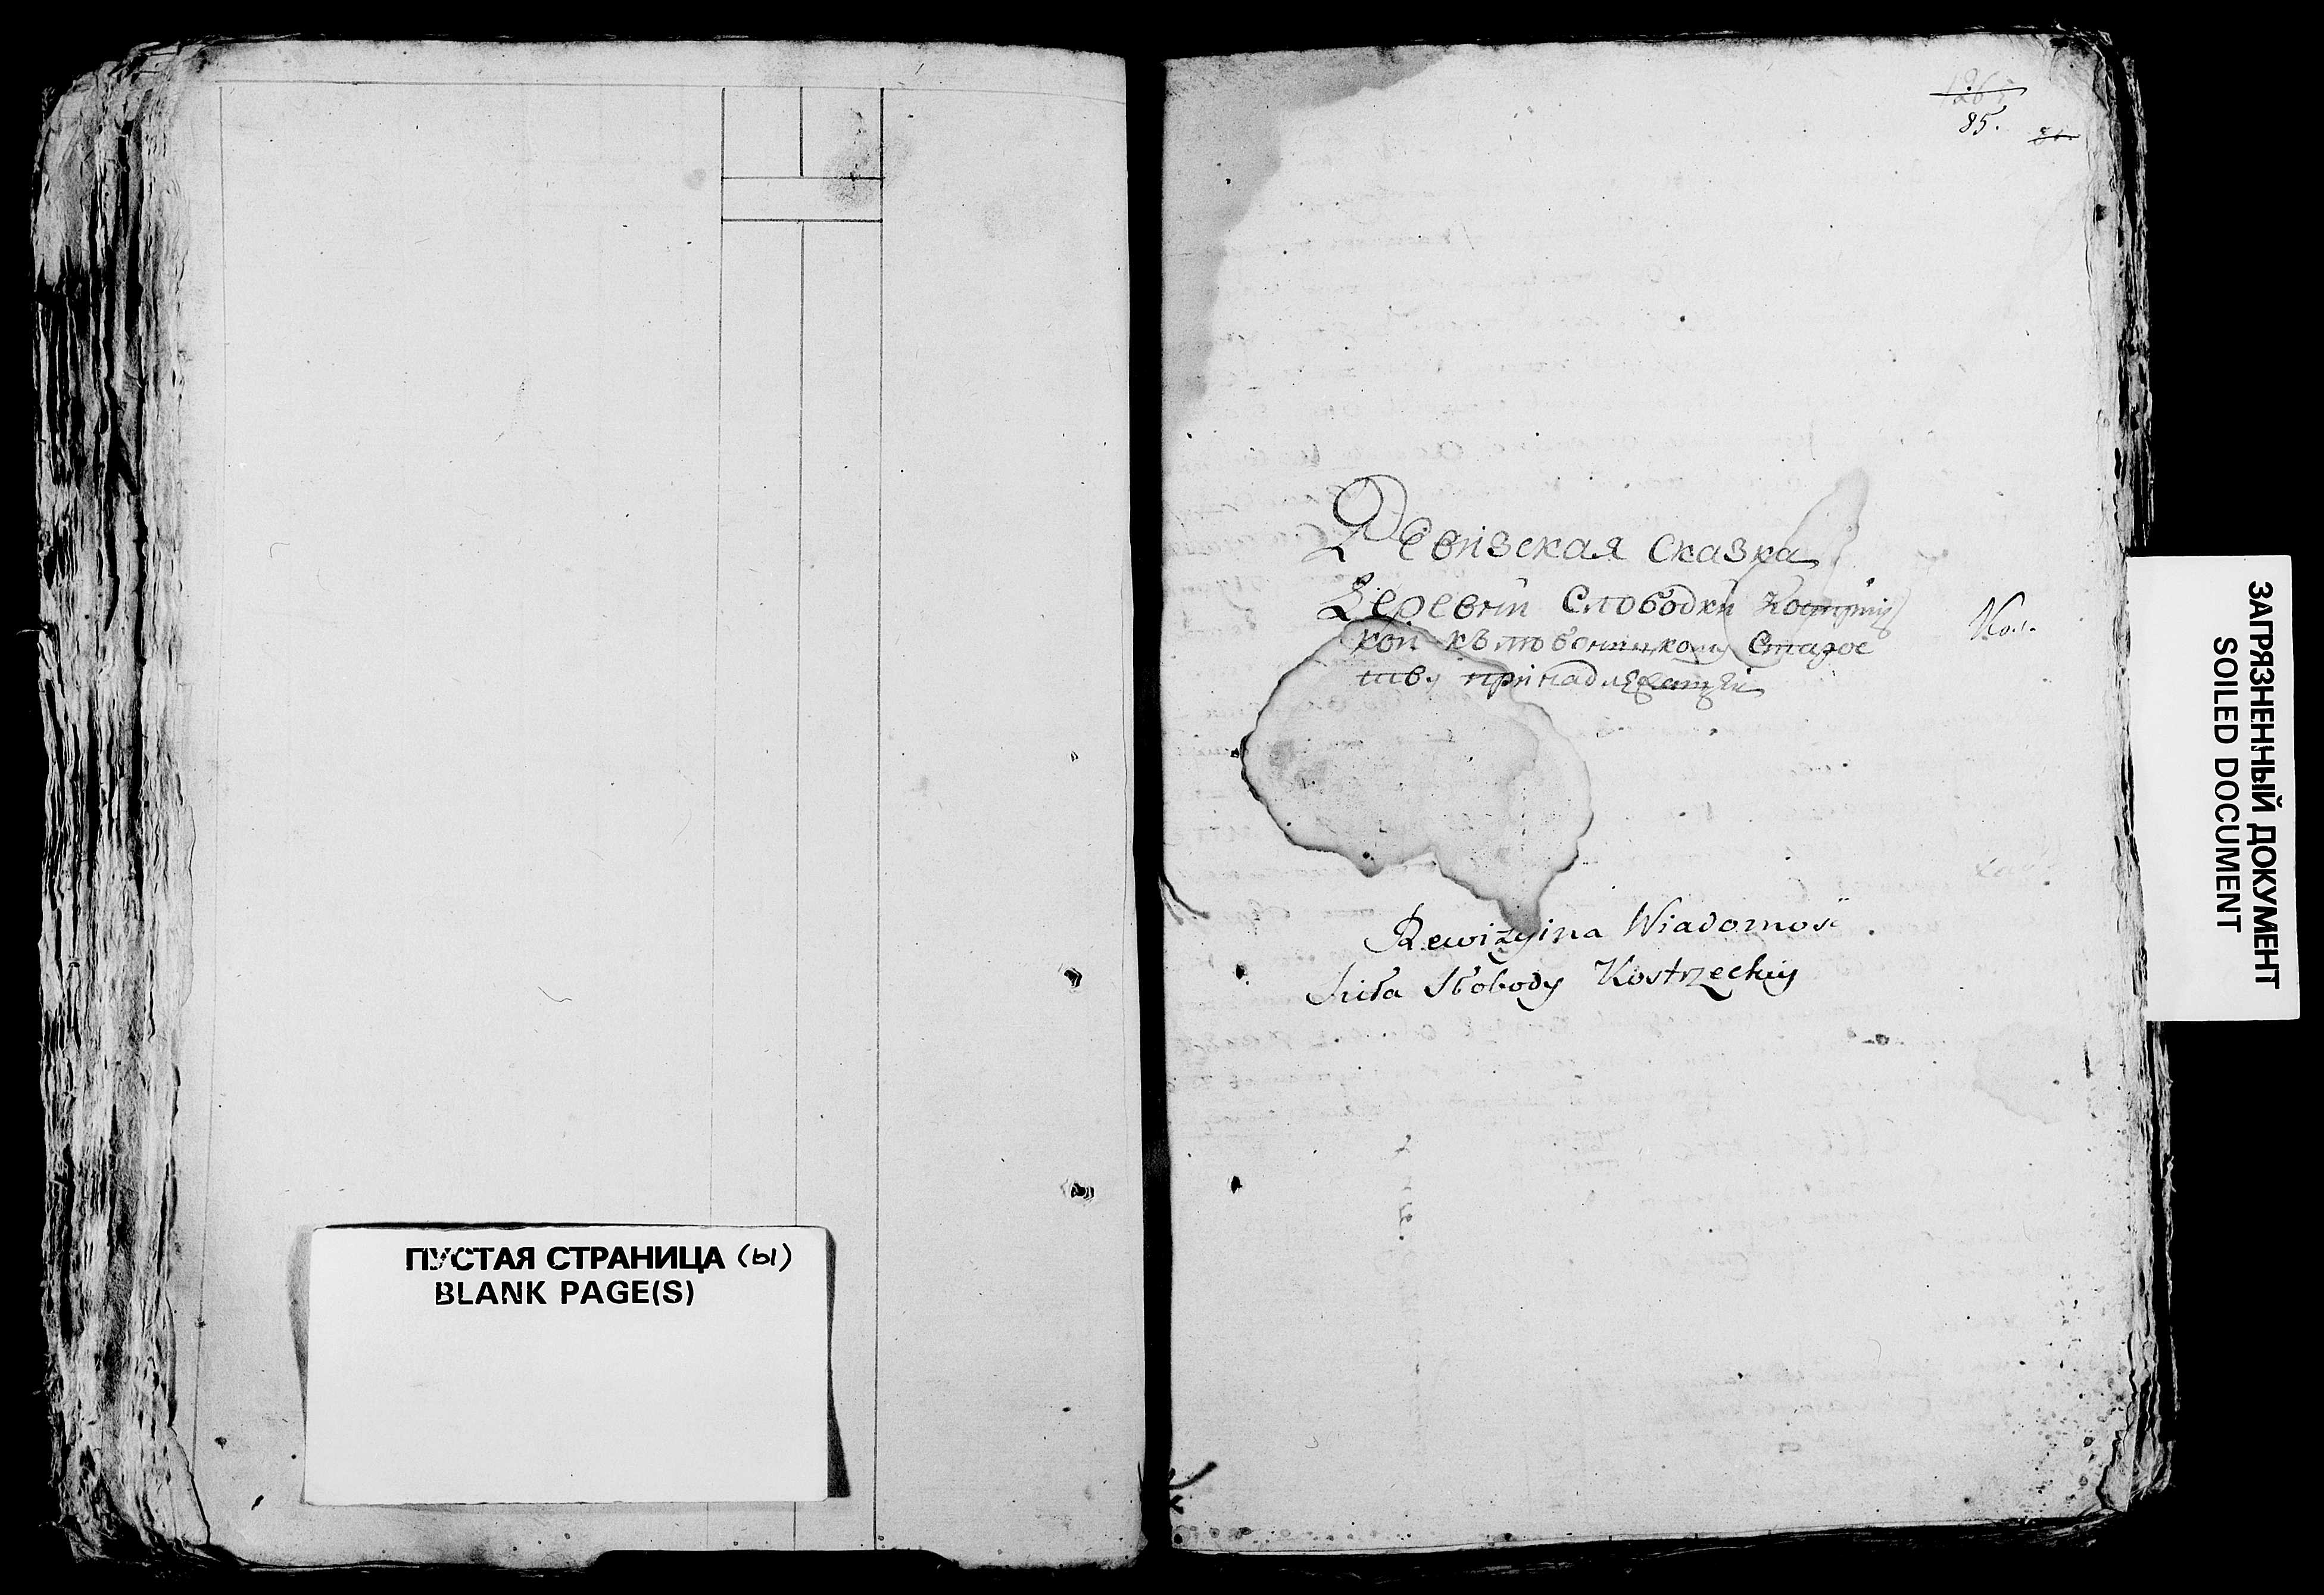 ПУСТАЯ СТРАНИЦА (Ы)
BLANK PAGE(S)
85.
Ревизская сказка
Деревни Слободки
кой къ Любоницкому Старос
тву принадлежащей
Rewizyina Wiadomosc
Sioła Słobody Kostrzeckiy
ЗАГРЯЗНЕННЫЙ ДОКУМЕНТ
SOILED DOCUMENT